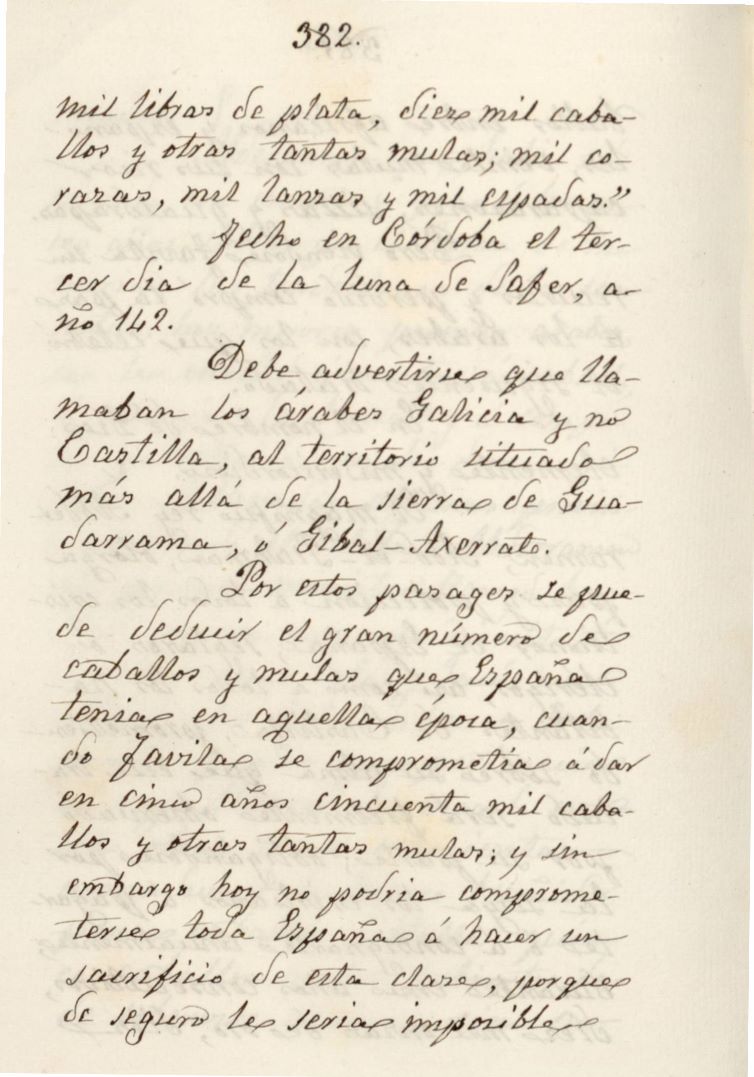 382.
mil libras de plata, diez mil caba-
llos y otras tantas mulas; mil co-
razas, mil lanzas y mil espadas."
Fecho en Córdoba el ter-
cer dia de la luna de Safer, a-
ño 142.
Debe advertirse que lla-
maban los árabes Galicia y no
Castilla, al territorio situado
más allá de la sierra de Gua-
darrama, ó Gibal-Axerrato.
Por estos pasages se pue-
de deducir el gran número de
caballos y mulas que España
tenia en aquella época, cuan-
do Favila se comprometia á dar
en cinco años cincuenta mil caba-
llos y otras tantas mulas; y sin
embargo hoy no podria comprome-
terse toda España á hacer un
sacrificio de esta clase, porque
de seguro le seria imposible